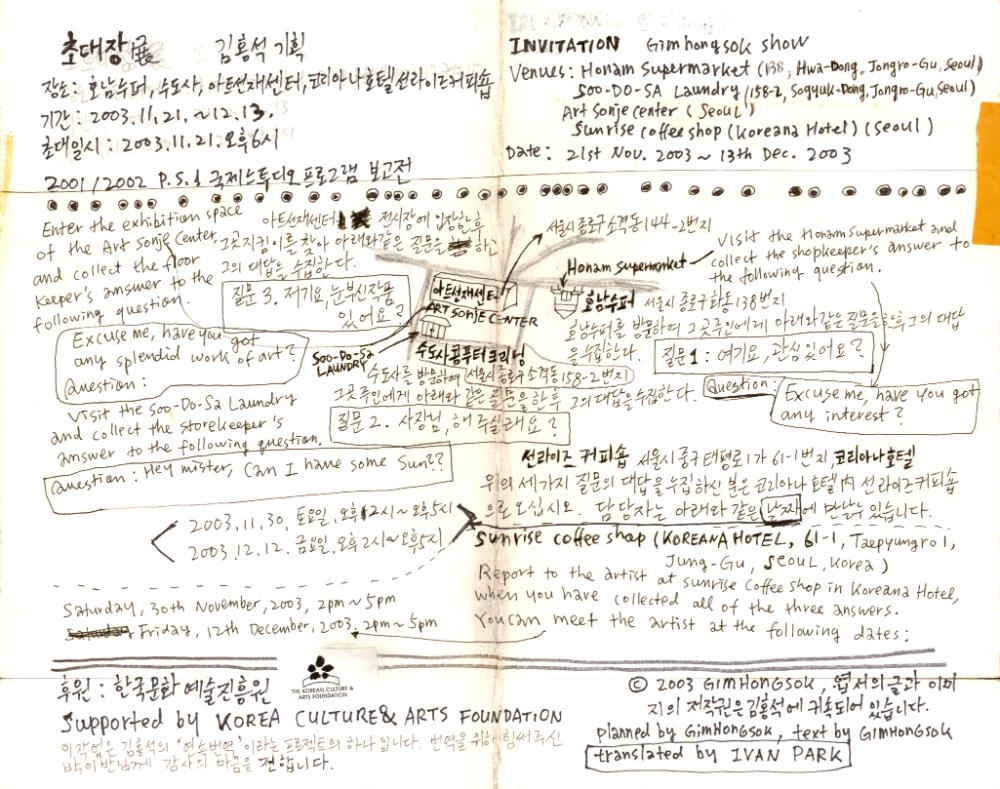 초대장展 김홍석 기획
장소: 호남수퍼, 수도사, 아트선재센터, 코리아나호텔선라이즈커피숍
기간: 2003.11.21.~12.13.
초대일시: 2003.11.21.오후6시
2001/2002 P.S.1 국제스튜디오프로그램 보고전
INVITATION Gimhongsok show
Venues: Honam Supermarket (138, Hwa-Dong, Jongro-Gu, Seoul)
Soo-DO-SA Laundry (158-2, Sogyuk-Dong, Jongro-Gu, Seoul)
Art Sonje Center (Seoul)
Sunrise coffee shop (Koreana Hotel) (Seoul)
Date: 21st Nov. 2003 ~ 13th Dec. 2003
Enter the exhibition space
of the Art Sonje Center,
and collect the floor
keeper's answer to the
following question.
아트선재센터 전시장에 입장한후
그곳지킴이를 찾아 아래와같은 질문을 하고
그의 대답을 수집한다.
질문 3. 저기요, 눈부신작품
있어요?
Excuse me, have you got
any splendid work of art?
Question:
아트선재센터
ART SONJE CENTER
서울시종로구소격동144-2번지
Honam Supermarket
Visit the Honam Supermarket and
collect the shopkeeper's answer to
the following question.
호남수퍼 서울시 종로구화동138번지
호남수퍼를 방문하여 그곳주인에게 아래와같은질문을한후그의 대답
을수집한다.
질문1: 여기요, 관심있어요?
Question:
Excuse me, have you got
any interest?
Soo-Do-Sa
LAUNDRY
수도사콤퓨터크리닝
수도사를 방문하여 서울시종로구소격동158-2번지
그곳주인에게 아래와 같은 질문을한후 그의 대답을수집한다.
질문2. 사장님, 해 주실래요?
Visit the Soo-Do-Sa Laundry
and collect the storekeeper's
answer to the following question.
Question: Hey mister, Can I have some Sun??
선라이즈 커피숍 서울시 중구태평로1가 61-1번지, 코리아나호텔
위의 세가지 질문의 대답을수집하신 분은 코리아나호텔內 선라이즈커피숍
으로 오십시오. 담당자는 아래와 같은 날짜에 만날수 있습니다.
2003.11.30, 토요일, 오후2시~오후5시
2003.12.12. 금요일, 오후2시~오후5시
Sunrise coffee shop (KOREANA HOTEL, 61-1, Taepyungro 1,
Jung-Gu, Seoul, Korea)
Report to the artist at sunrise Coffee shop in Koreana Hotel,
when you have collected all of the three answers.
You can meet the artist at the following dates:
Saturday, 30th November, 2003, 2pm~5pm
Friday, 12th December, 2003, 2pm~5pm
후원: 한국문화예술진흥원
THE KOREAN CULTURE &
ARTS FOUNDATION
Supported by KOREA CULTURE & ARTS FOUNDATION
이작업은 김홍석의 '연속번역'이라는 프로젝트의 하나 입니다. 번역을 위해 힘써 주신
박이반님께 감사의 마음을 전합니다.
© 2003 GIMHONGSOK, 엽서의글과 이미
지의 저작권은김홍석에 귀속되어 있습니다.
planned by GimHongsok, text by GIMHONGSOK
translated by IVAN PARK